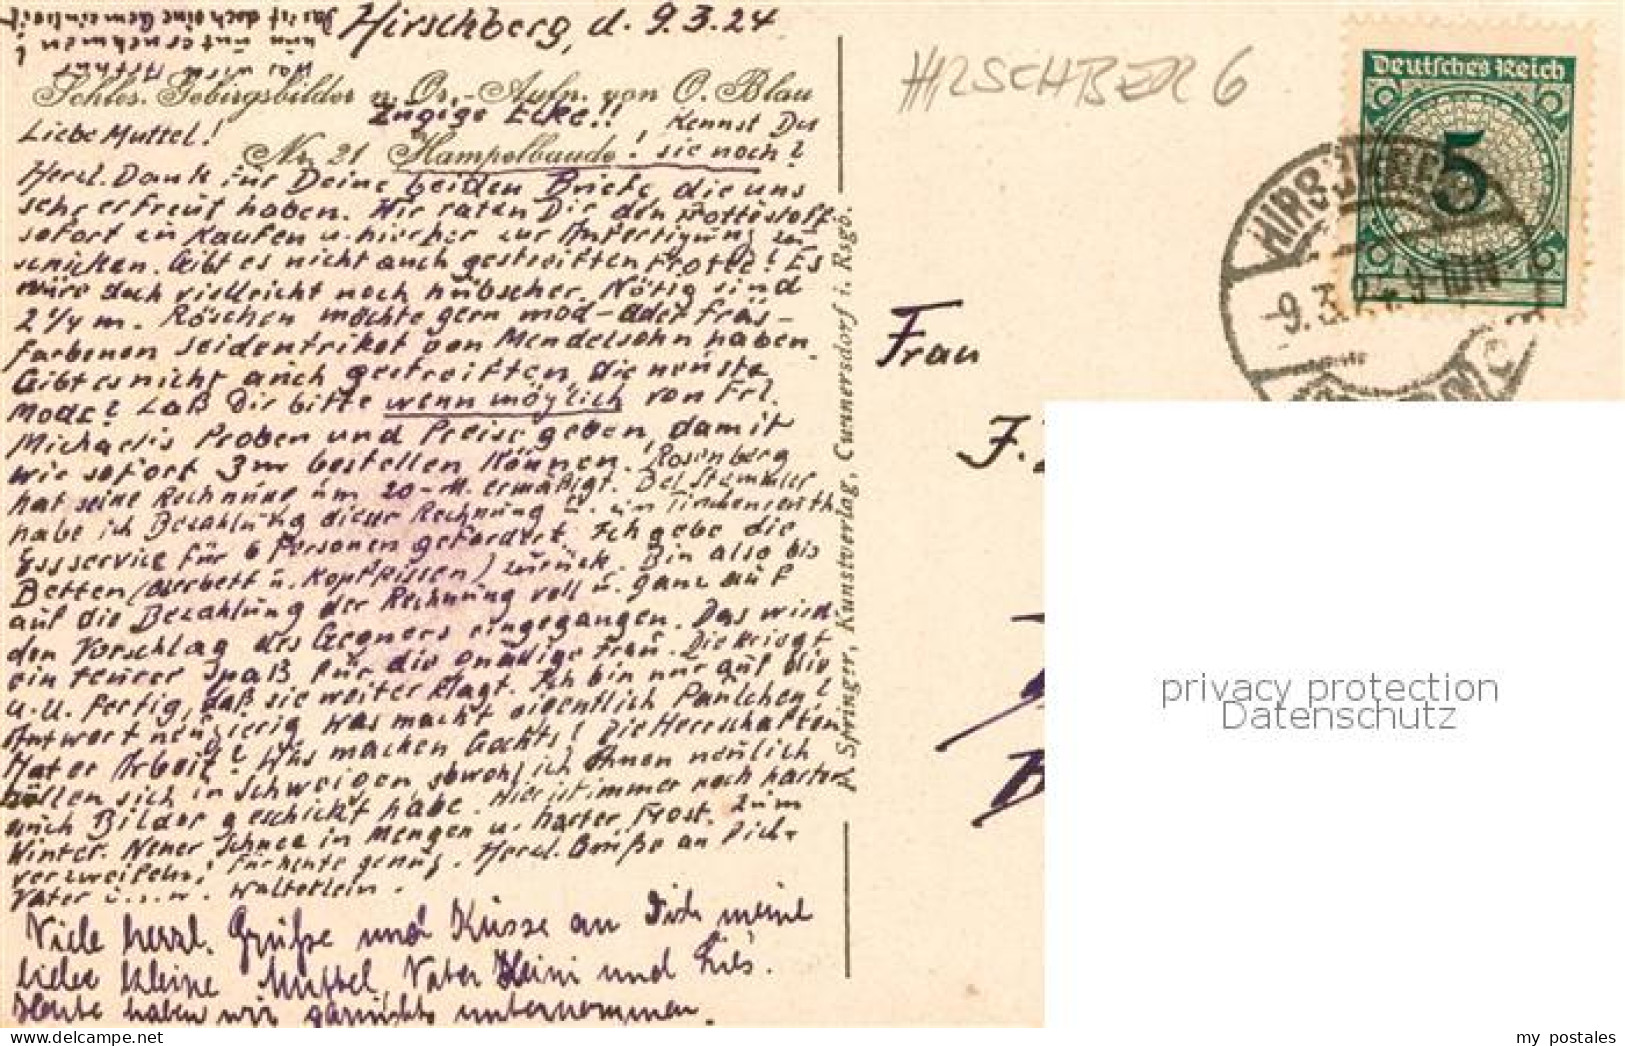 Hirschberg, d. 9.3.24
Das ist doch eine Gemeinheit!
nun unternehmen?
Was wird Arthur
Schles. Gebirgsbilder n. Or.-Aufn. von O. Blau
Zugige Ecke!! Kennst Du
Liebe Muttel!
Nr. 21 Hampelbaude! sie noch?
Herzl. Dank für Deine beiden Briefe, die uns
sehr erfreut haben. Wir raten Dir den Frottéstoff
sofort zu kaufen u. hierher zur Anfertigung zu
schicken. Gibt es nicht auch gestreiften Frotté? Es
wäre doch vielleicht noch hübscher. Nötig sind
2 1/4 m. Röschen möchte gern mod- oder fräs-
farbenen Seidentrikot von Mendelsohn haben.
Gibt es nicht auch gestreiften, die neuste
Mode? Laß Dir bitte wenn möglich von Frl.
Michaelis Proben und Preise geben, damit
wir sofort 3m bestellen können. Rosenberg
hat seine Rechnung um 20-M. ermäßigt. Bei Stammler
habe ich Bezahlung dieser Rechnung u. ein Tirschenreuth
Essservice für 6 Personen gefordert. Ich gebe die
Betten (Oberbett u. Kopfkissen) zurück. Bin also bis
auf die Bezahlung der Rechnung voll u. ganz auf
den Vorschlag des Gegners eingegangen. Das wird
ein teurer Spaß für die gnädige Frau. Die kriegt
u.U. fertig, daß sie weiter klagt. Ich bin nur auf die
Antwort neugierig. Was macht eigentlich Paulchen?
Hat er Arbeit? Was machen Gochts? Die Herrschaften
hüllen sich in Schweigen, obwohl ich Ihnen neulich
auch Bilder geschickt habe. Hier ist immer noch harter
Winter. Neuer Schnee in Mengen u. harter Frost. Zum
verzweifeln! Für heute genug. Herzl. Grüße an Dich,
Vater u.s.w. Walterlein.
Viele herzl. Grüße und Küsse an Dich meine
liebe kleine Muttel, Vater Heini und Lies.
Heute haben wir garnichts unternommen.
A. Springer, Kunstverlag, Cunnersdorf i. Rsgb.
HIRSCHBERG 6
Deutsches Reich
5
HIRSCHBERG
-9.3.24 9-10N
Frau
privacy protection
Datenschutz
my postales